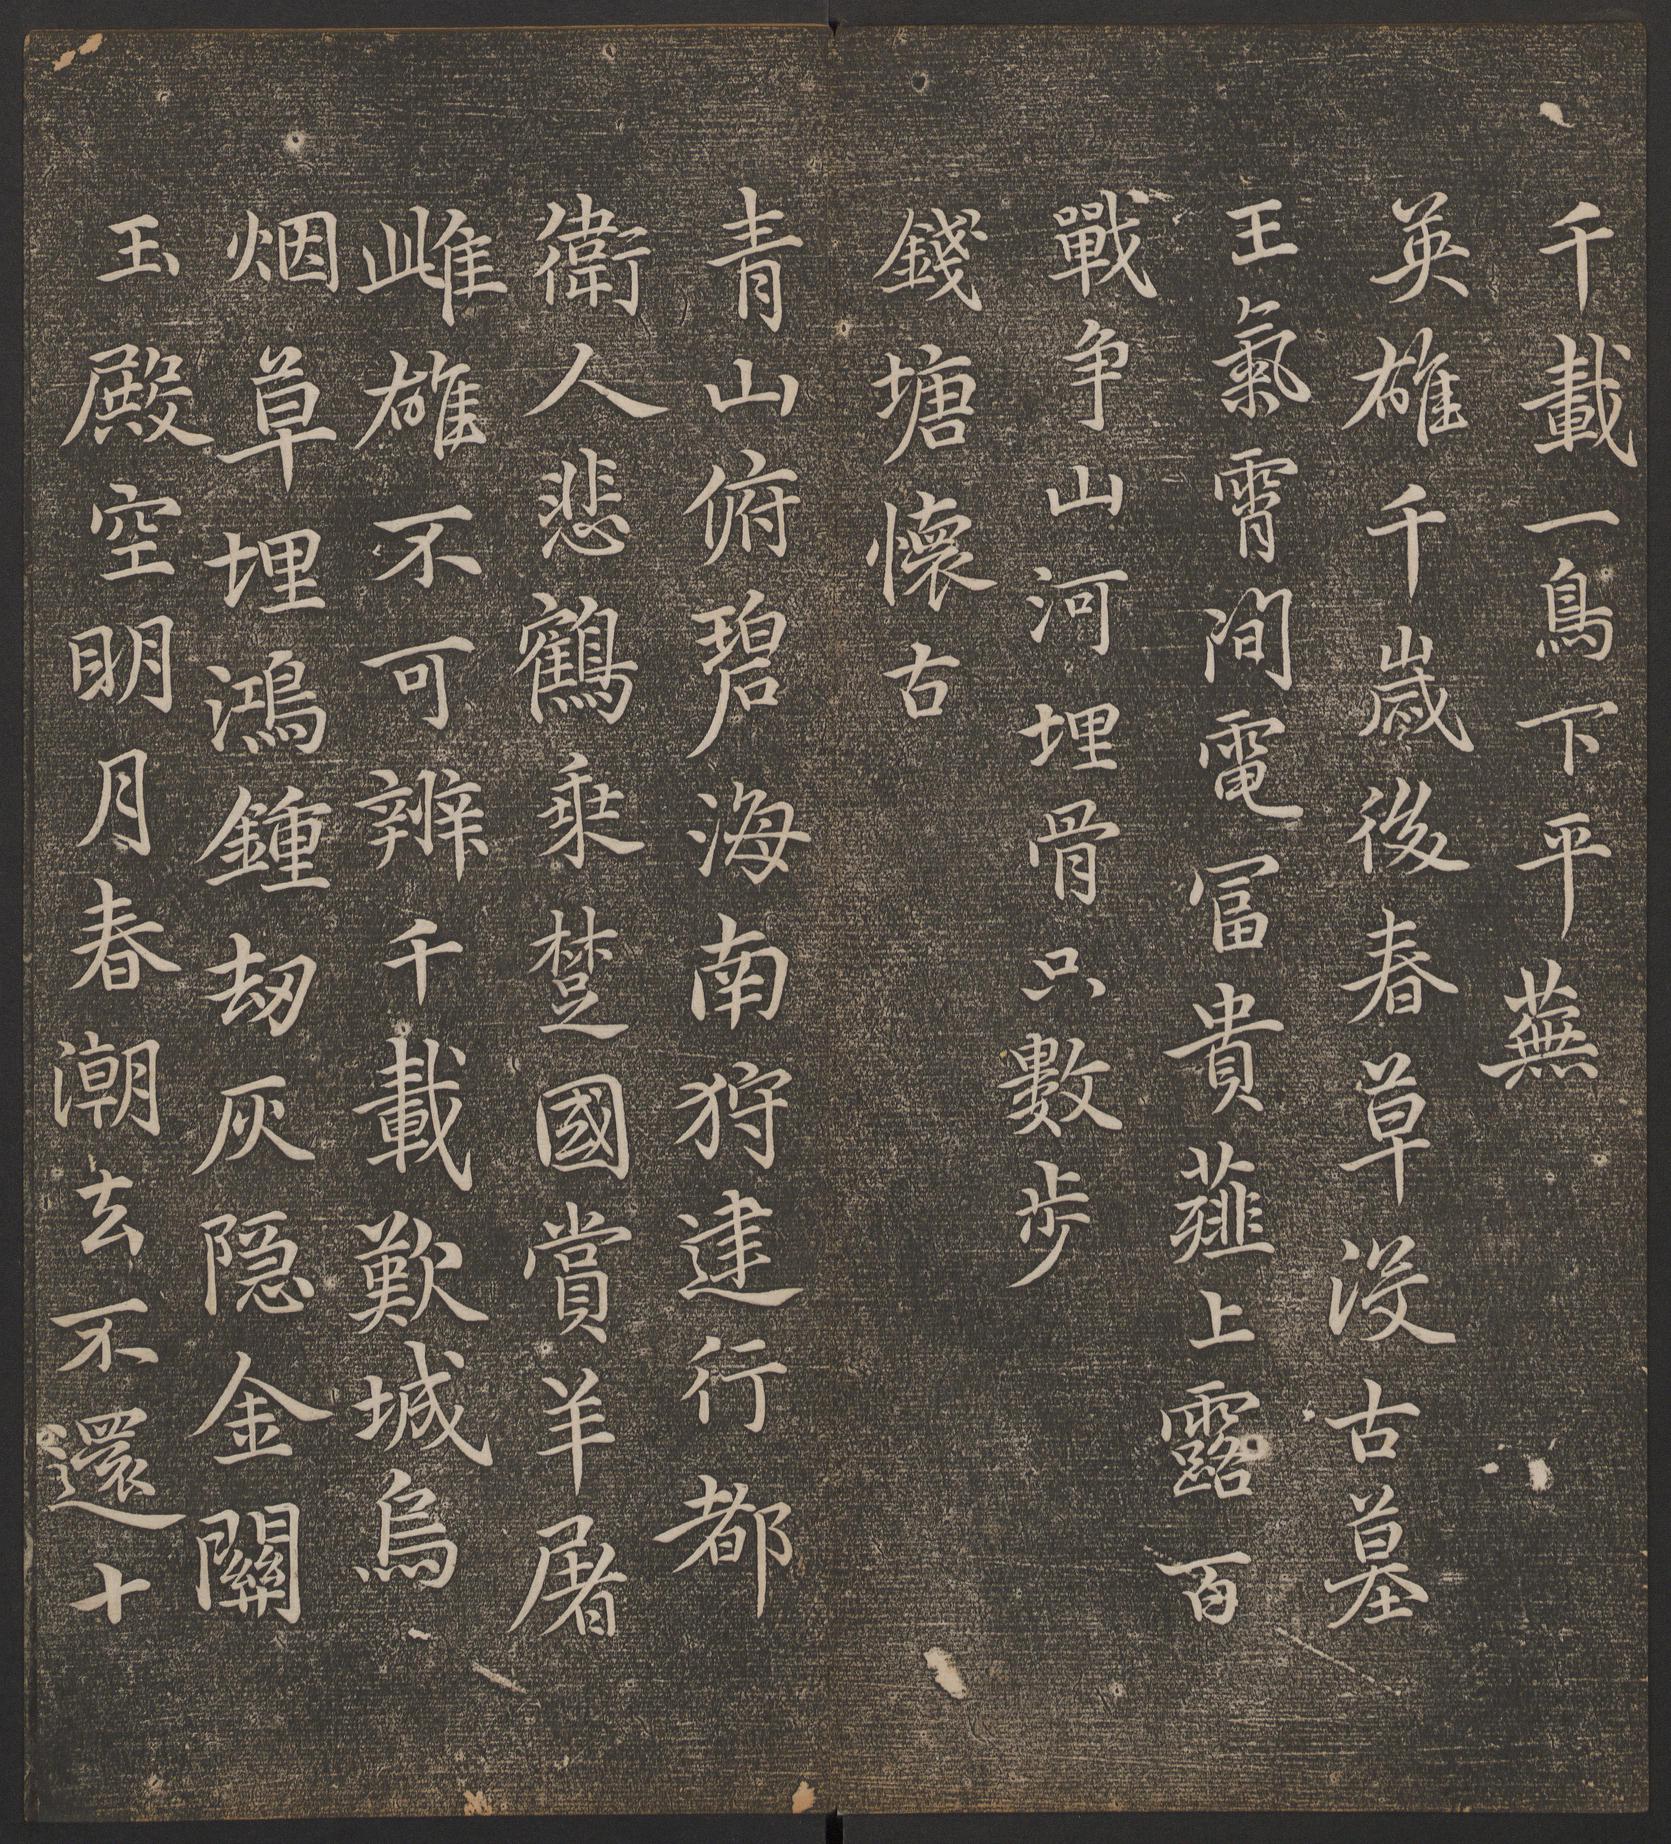 千載一鳥下平蕪
英雄千歲後春草沒古墓
王氣霄間電冨貴薤上露百
戰争山河埋骨只數步
錢塘懷古
青山俯碧海南狩建行都
衛人悲鶴乗楚國賞羊屠
雌雄不可辨千載歎城烏
烟草埋鴻鍾刼灰隠金關
玉殿空明月春潮去不還十